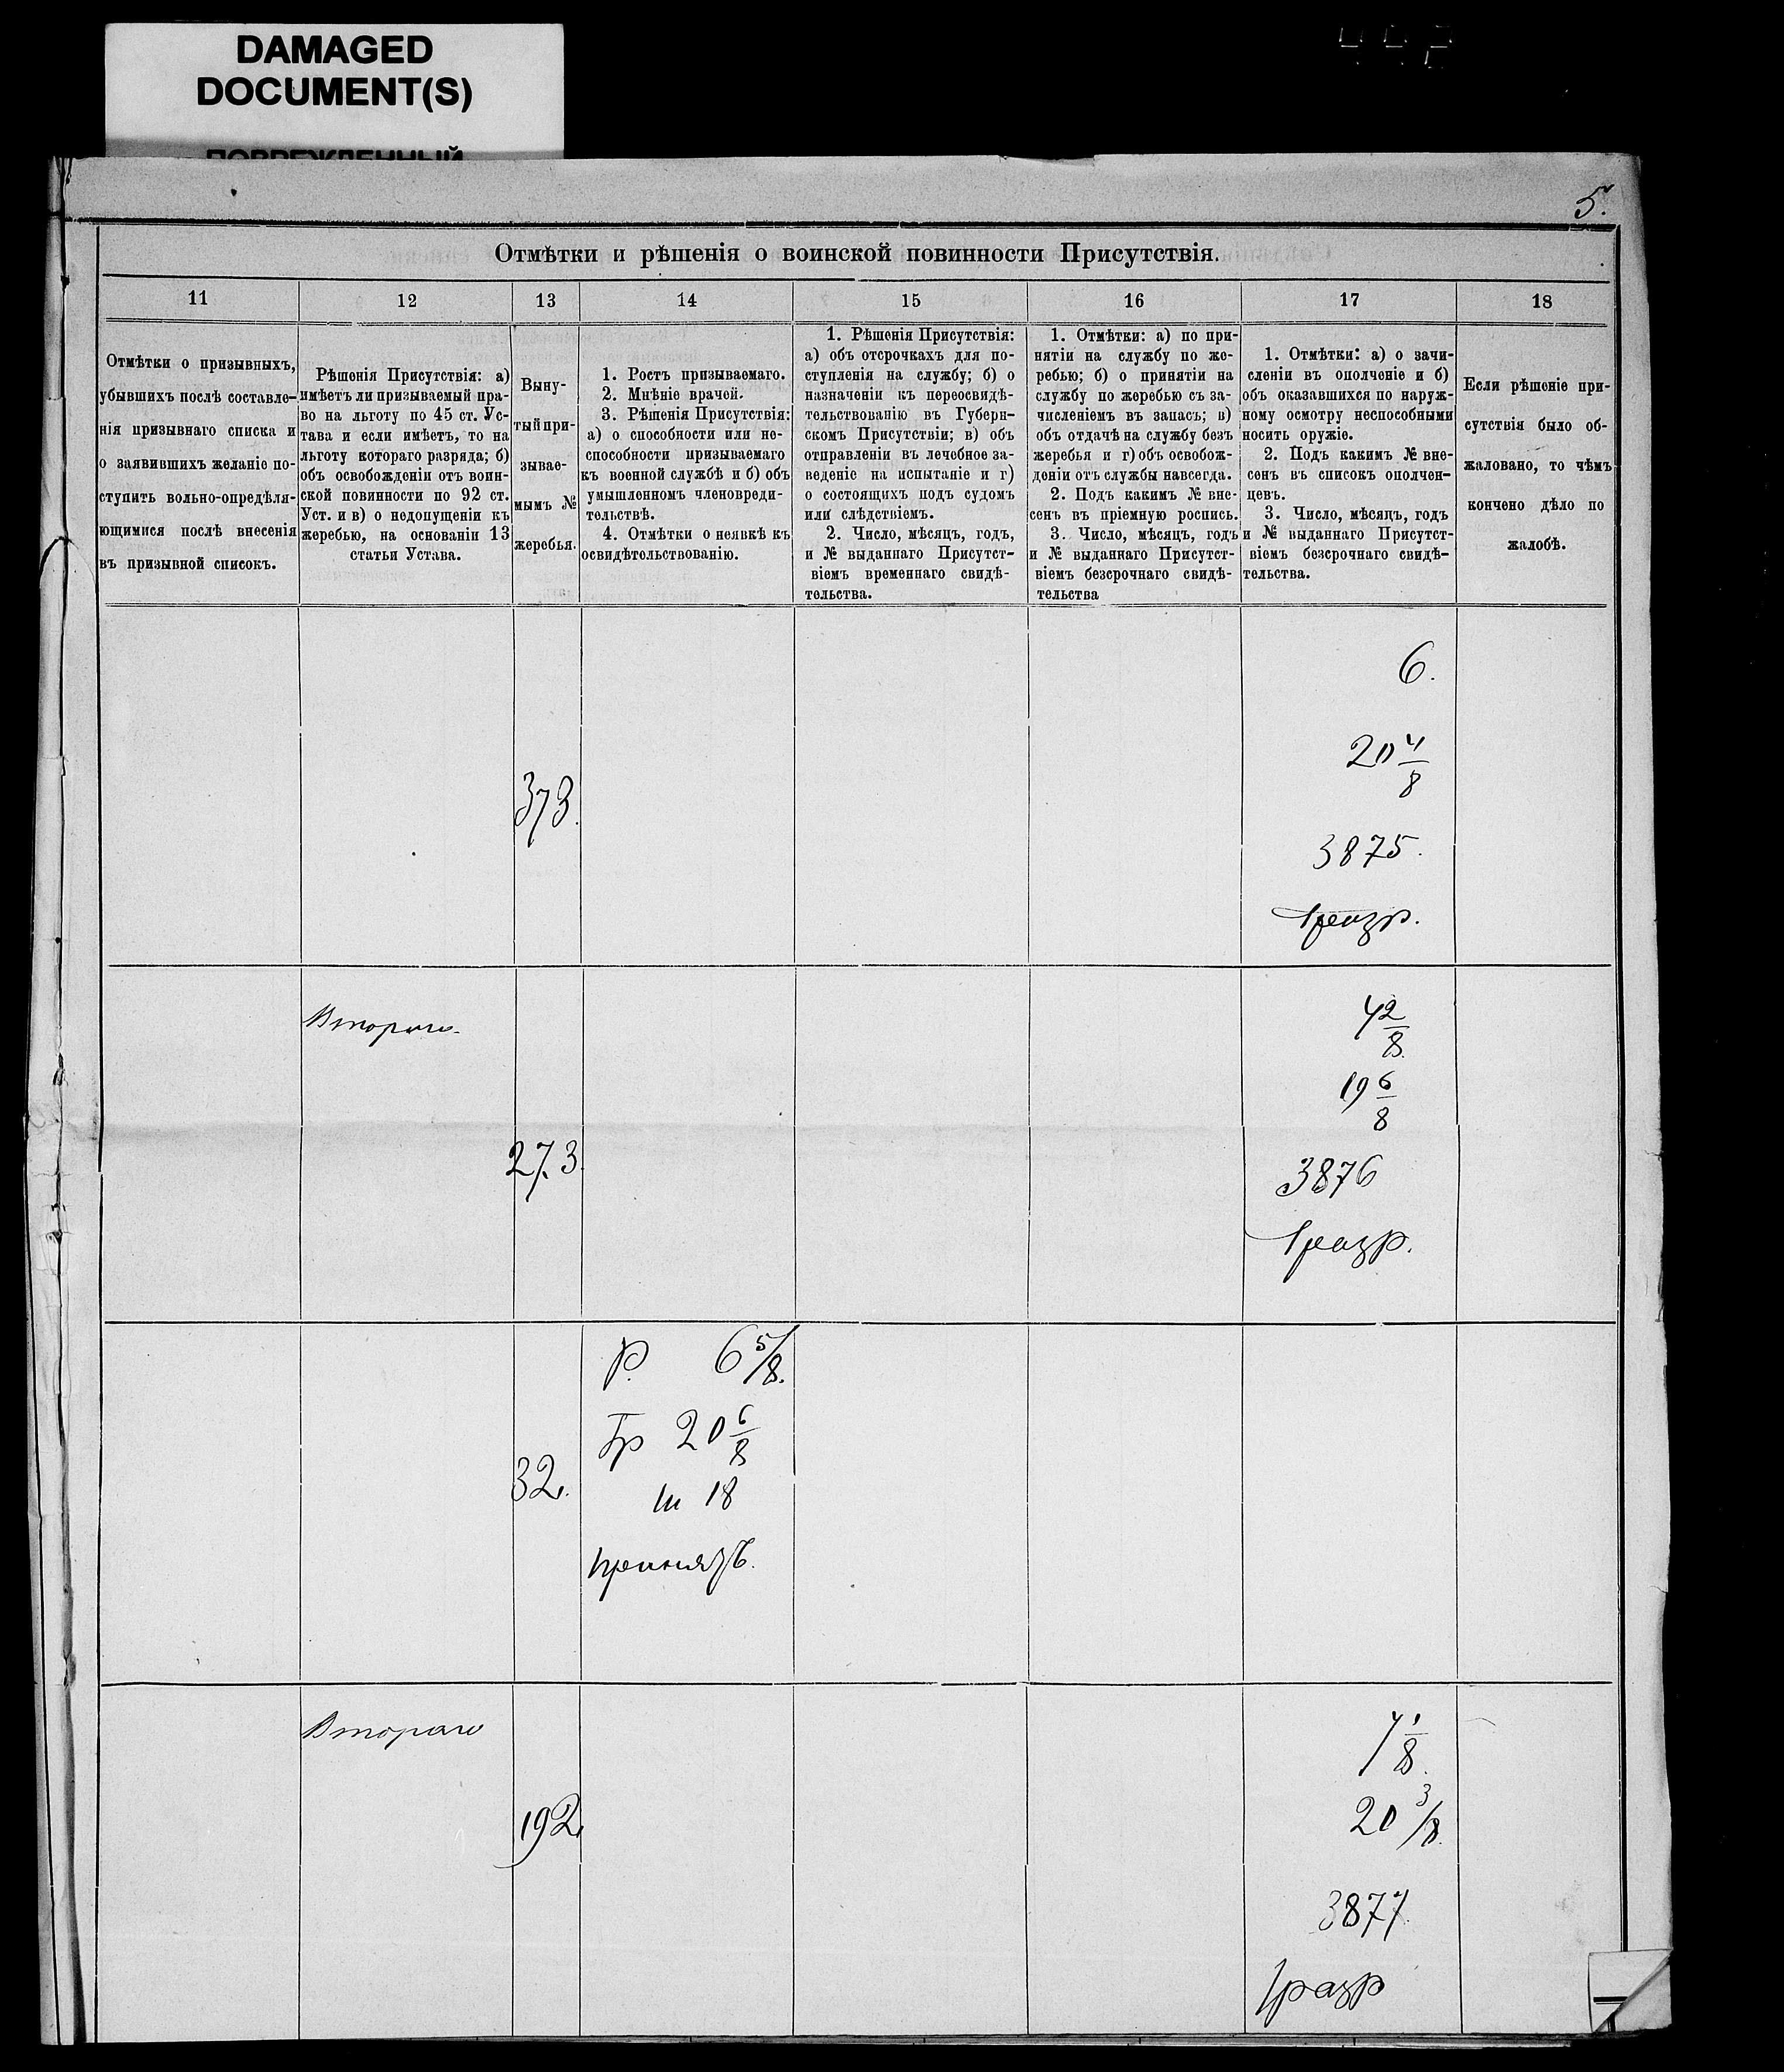 DAMAGED
DOCUMENT(S)
ПОВРЕЖДЕННЫЙ
5.
Отмѣтки и рѣшенія о воинской повинности Присутствія.
11
12
13
14
15
16
17
18
Отмѣтки о призывныхъ,
убывшихъ послѣ составле-
нія призывнаго списка и
о заявившихъ желаніе по-
ступить вольно-опредѣля-
ющимися послѣ внесенія
въ призывной списокъ.
Рѣшенія Присутствія: а)
имѣетъ ли призываемый пра-
во на льготу по 45 ст. Ус-
тава и если имѣетъ, то на
льготу котораго разряда; б)
объ освобожденіи отъ воин-
ской повинности по 92 ст.
Уст. и в) о недопущеніи къ
жеребью, на основаніи 13
статьи Устава.
Выну-
тый при-
зывае-
мымъ №
жеребья.
1. Ростъ призываемаго.
2. Мнѣніе врачей.
3. Рѣшенія Присутствія:
а) о способности или не-
способности призываемаго
къ военной службѣ и б) объ
умышленномъ членовреди-
тельствѣ.
4. Отмѣтки о неявкѣ къ
освидѣтельствованію.
1. Рѣшенія Присутствія:
а) объ отсрочкахъ для по-
ступленія на службу; б) о
назначеніи къ переосвидѣ-
тельствованію въ Губерн-
скомъ Присутствіи; в) объ
отправленіи въ лечебное за-
веденіе на испытаніе и г)
о состоящихъ подъ судомъ
или слѣдствіемъ.
2. Число, мѣсяцъ, годъ,
и № выданнаго Присутст-
віемъ временнаго свидѣ-
тельства.
1. Отмѣтки: а) по при-
нятіи на службу по же-
ребью; б) о принятіи на
службу по жеребью съ за-
численіемъ въ запасъ; в)
объ отдачѣ на службу безъ
жеребья и г) объ освобож-
деніи отъ службы навсегда.
2. Подъ какимъ № вне-
сенъ въ пріемную роспись.
3. Число, мѣсяцъ, годъ
и № выданнаго Присутст-
віемъ безсрочнаго свидѣ-
тельства
1. Отмѣтки: а) о зачи-
сленіи въ ополченіе и б)
объ оказавшихся по наруж-
ному осмотру неспособными
носить оружіе.
2. Подъ какимъ № вне-
сенъ въ списокъ ополчен-
цевъ.
3. Число, мѣсяцъ, годъ
и № выданнаго Присутст-
віемъ безсрочнаго свидѣ-
тельства.
Если рѣшеніе при-
сутствія было об-
жаловано, то чѣмъ
кончено дѣло по
жалобѣ.
373.
6.
20 4/8
3875.
1 разр.
Втораго
273.
4 2/8.
19 6/8
3876
1 разр.
32.
Р. 6 5/8.
Гр 20 6/8
ш 18
принятъ.
Втораго
192.
7 1/8.
20 3/8.
3877.
1 разр